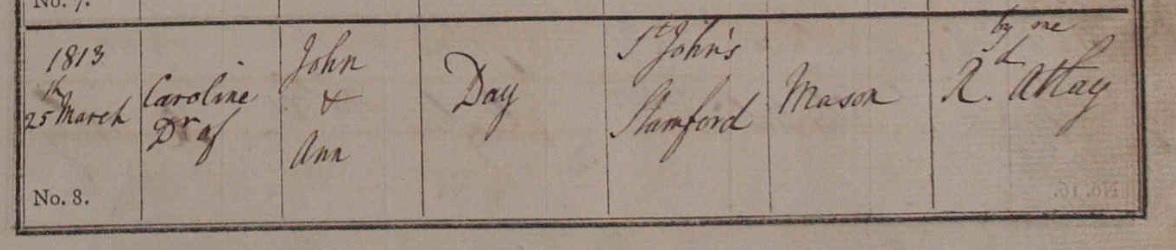 No. 7.
1813
25th March
No. 8.
Caroline
Dr of
John
&
Ann
Day
St John's
Stamford
Mason
by me
Rd Attay
No. 16.